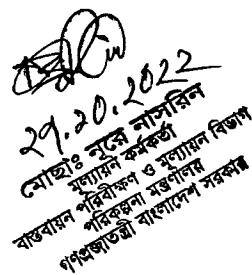 ২৭.১০.২০২২
মোছাঃ নূরে নাসরিন
মূল্যায়ন কর্মকর্তা
বাস্তবায়ন পরিবীক্ষণ ও মূল্যায়ন বিভাগ
পরিকল্পনা মন্ত্রণালয়
গণপ্রজাতন্ত্রী বাংলাদেশ সরকার